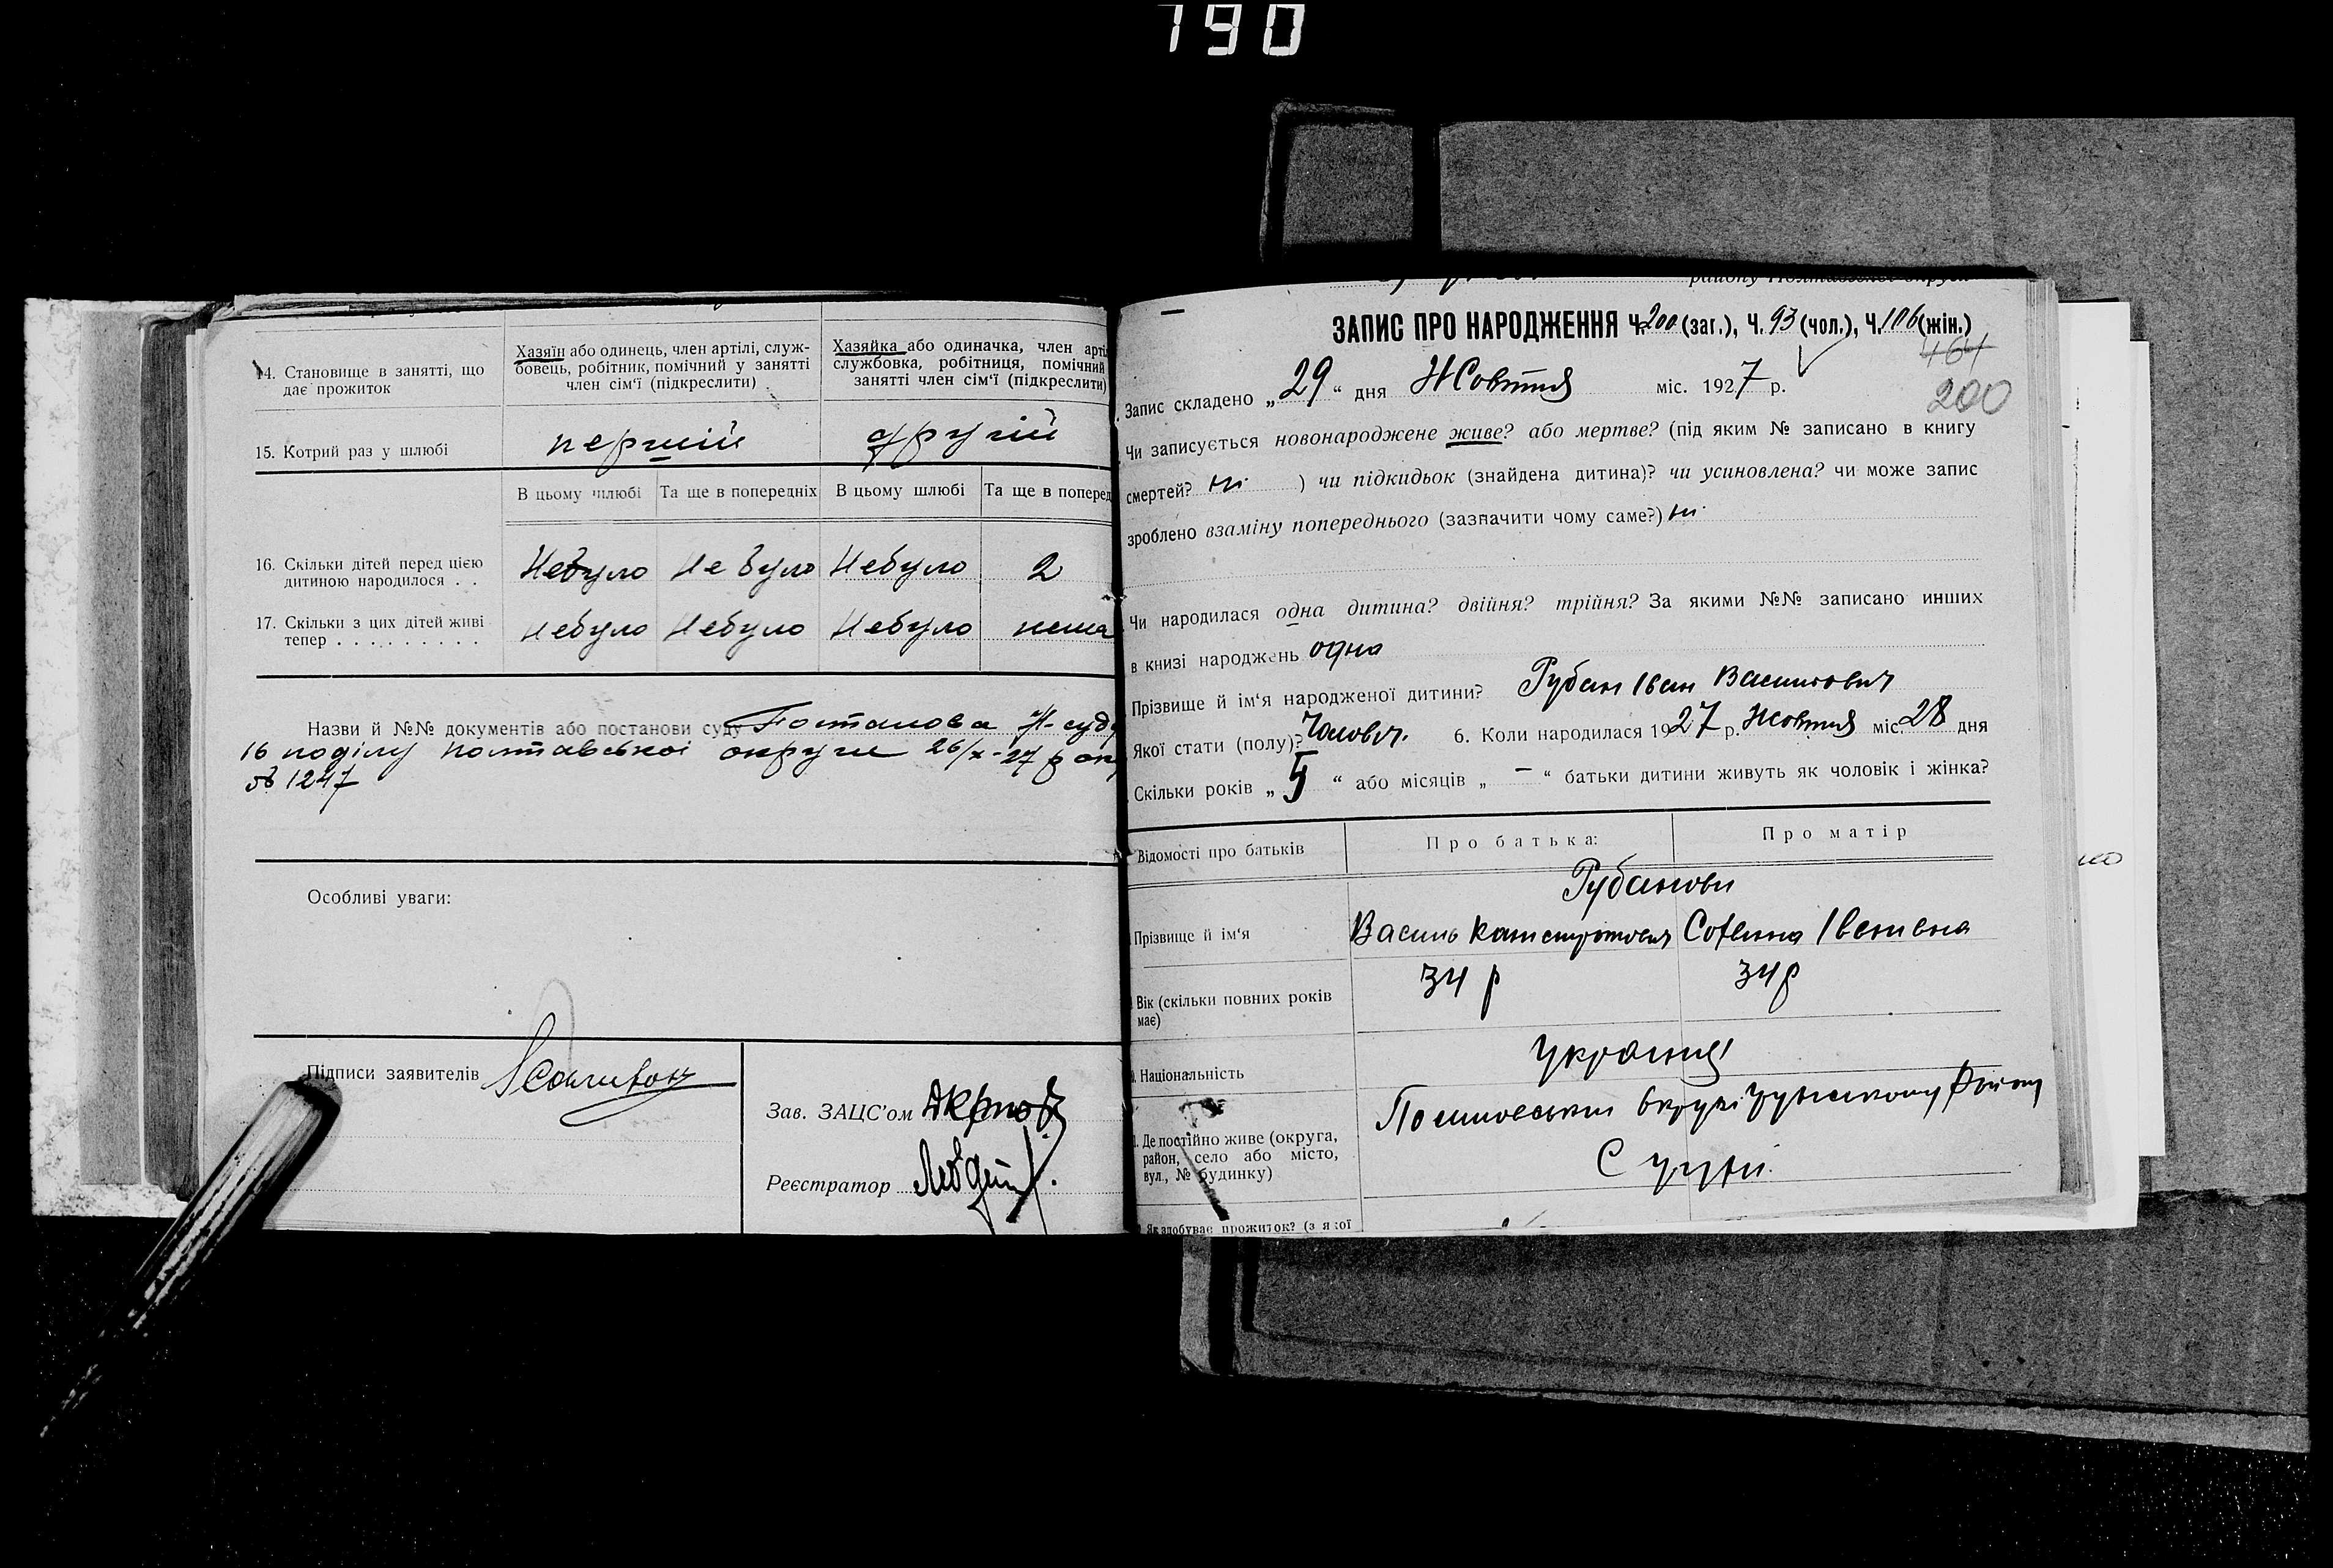 190
14. Становище в занятті, що
дає прожиток
Хазяїн або одинець, член артілі, служ-
бовець, робітник, помічний у занятті
член сім'ї (підкреслити)
Хазяйка або одиначка, член арті
службовка, робітниця, помічний
занятті член сім'ї (підкреслити)
15. Котрий раз у шлюбі
перший
другій
В цьому шлюбі
Та ще в попередніх
В цьому шлюбі
Та ще в поперед
16. Скільки дітей перед цією
дитиною народилося . .
Небуло
Не було
Небуло
2
17. Скільки з цих дітей живі
тепер . . . . . . . . .
Небуло
Небуло
Небуло
нема
Назви й №№ документів або постанови суду Постанова Н-суду
16 поділу полтавської округи 26/х-27 р
№ 1247
Особливі уваги:
Підписи заявителів
Зав. ЗАЦС'ом
Реєстратор
району Полтавської округи
ЗАПИС ПРО НАРОДЖЕННЯ Ч. 200 (заг.), Ч. 93 (чол.), Ч. 106 (жін.)
464
200
Запис складено „29“ дня Жовтня міс. 1927 р.
Чи записується новонароджене живе? або мертве? (під яким № записано в книгу
смертей? ні ) чи підкидьок (знайдена дитина)? чи усиновлена? чи може запис
зроблено взаміну попереднього (зазначити чому саме?) ні
Чи народилася одна дитина? двійня? трійня? За якими №№ записано инших
в книзі народжень одна
Прізвище й ім'я народженої дитини? Рубан Іван Василович
Якої стати (полу)? Чолович. 6. Коли народилася 1927 р. Жовтня міс. 28 дня
Скільки років „ “ або місяців „ — “ батьки дитини живуть як чоловік і жінка?
Відомості про батьків
Про батька:
Про матір
Рубанови
Прізвище й ім'я
Василь
Іванівна
Вік (скільки повних років
має)
34 р
34 р
Національність
Україниці
Де постійно живе (округа,
район, село або місто,
вул., № будинку)
округи району
С
Як здобуває прожиток? (з якої